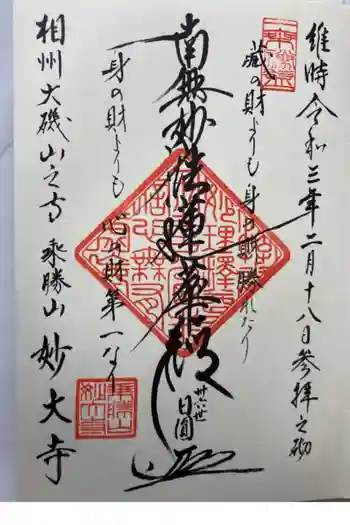 維時令和三年二月十八日参拝之砌
蔵の財よりも身の財勝れたり
南無妙法蓮華経
卅六世
日圓
身の財よりも心の財第一なり
相州大磯山之寺 乗勝山 妙大寺